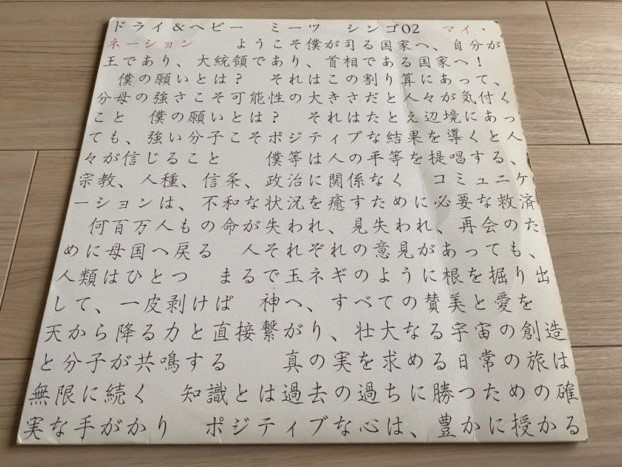 ドライ&ヘビー ミーツ シンゴ02 マイ・
ネーション ようこそ僕が司る国家へ、自分が
王であり、大統領であり、首相である国家へ!
僕の願いとは? それはこの割り算にあって、
分母の強さこそ可能性の大きさだと人々が気付く
こと 僕の願いとは? それはたとえ辺境にあっ
ても、強い分子こそポジティブな結果を導くと人
々が信じること 僕等は人の平等を提唱する、
宗教、人種、信条、政治に関係なく コミュニケ
ーションは、不和な状況を癒すために必要な救済
何百万人もの命が失われ、見失われ、再会のた
めに母国へ戻る 人それぞれの意見があっても、
人類はひとつ まるで玉ネギのように根を掘り出
して、一皮剥けば 神へ、すべての賛美と愛を
天から降る力と直接繋がり、壮大なる宇宙の創造
と分子が共鳴する 真の実を求める日常の旅は
無限に続く 知識とは過去の過ちに勝つための確
実な手がかり ポジティブな心は、豊かに授かる